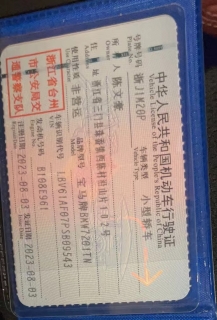 中华人民共和国机动车行驶证
Vehicle License of the People's Republic of China
号牌号码 浙J1M20P 车辆类型 小型轿车
Plate No. Vehicle Type
所有人
Owner
住址 浙江省三门县
Address
使用性质 非营运 品牌型号 宝马牌BMW7201TN
Use Character Model
浙江省台州
市公安局交
通警察支队
车辆识别代号
VIN
发动机号码
Engine No.
注册日期 2023-08-03 发证日期 2023-08-03
Register Date Issue Date